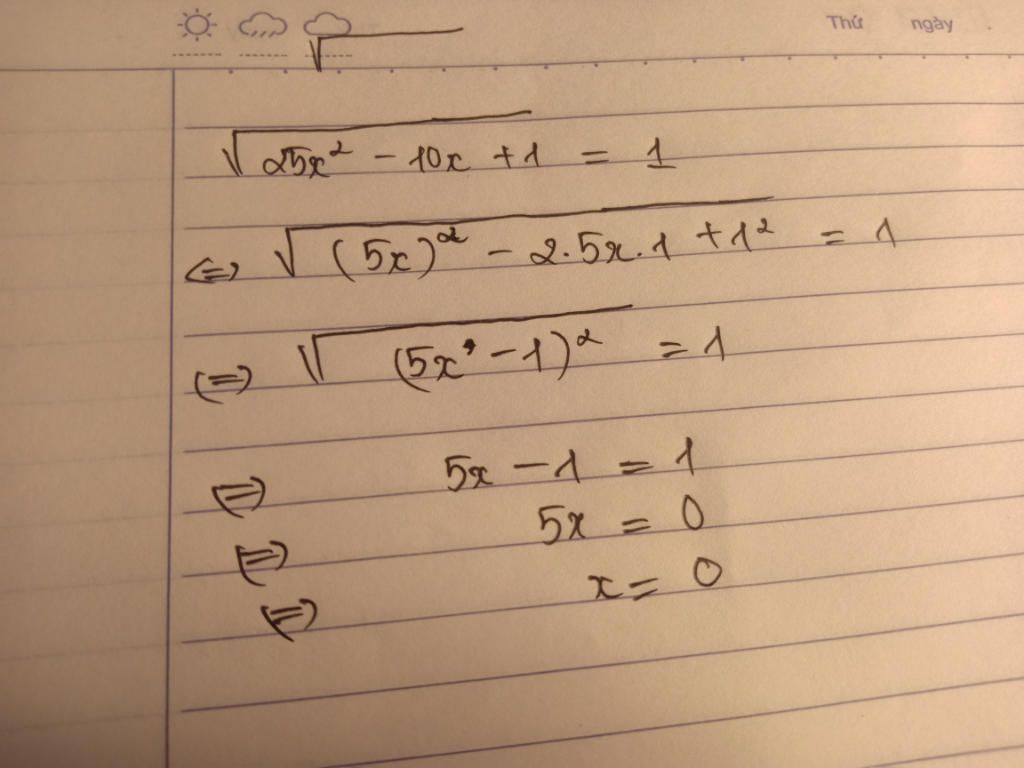 Thứ ngày
√
√25x² - 10x + 1 = 1
<=> √(5x)² - 2.5x.1 + 1² = 1
<=> √(5x - 1)² = 1
<=> 5x - 1 = 1
<=> 5x = 0
<=> x = 0